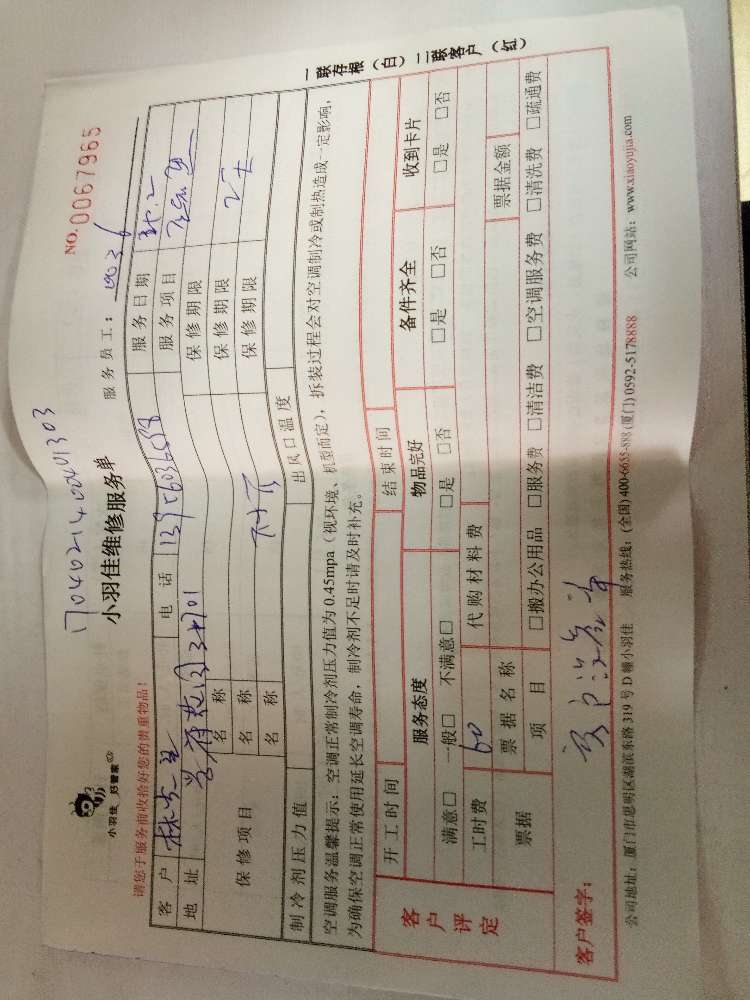 NO.0067965
1704021400401303
小羽佳 好管家
小羽佳维修服务单
服务员工：
请您于服务前收拾好您的贵重物品！
客户 电话 服务日期
地址 服务项目
保修项目 名称 保修期限
名称 保修期限
名称 保修期限
制冷剂压力值 出风口温度
空调服务温馨提示：空调正常制冷剂压力值为0.45mpa（视环境、机型而定），拆装过程会对空调制冷或制热造成一定影响，
为确保空调正常使用延长空调寿命，制冷剂不足时请及时补充。
开工时间 结束时间
客户评定 服务态度 物品完好 备件齐全 收到卡片
满意□ 一般□ 不满意□ □是 □否 □是 □否 □是 □否
工时费 60 代购材料费
票据 票据名称 票据金额
项目 □搬办公用品 □服务费 □清洁费 □空调服务费 □清洗费 □疏通费
客户签字：
公司地址：厦门市思明区湖滨东路319号D幢小羽佳 服务热线：(全国)400-6655-888 (厦门)0592-5178888 公司网站：www.xiaoyujia.com
一联存根（白）二联客户（红）